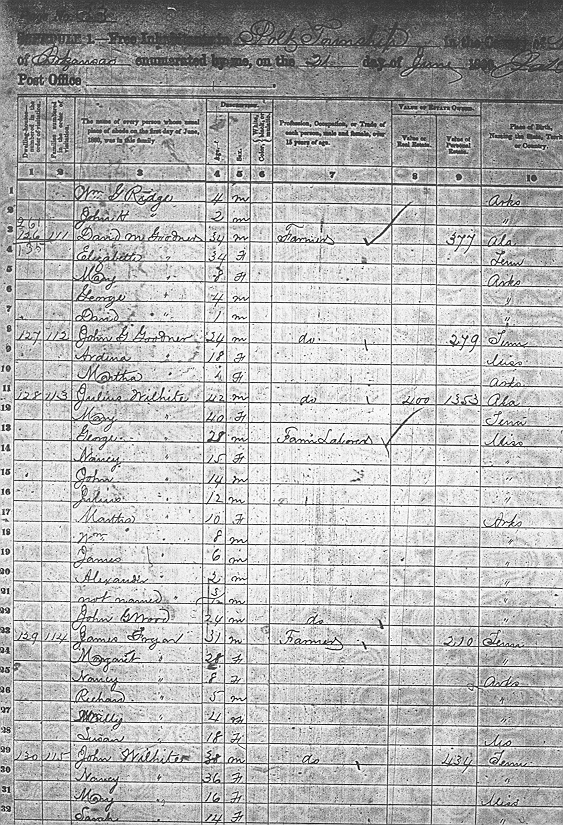 SCHEDULE 1.—Free Inhabitants in Polk Township in the County of
of Arkansas enumerated by me, on the 21 day of June
Post Office
DESCRIPTION. VALUE OF ESTATE OWNED.
The name of every person whose usual place of abode on the first day of June, 1860, was in this family
Age. Sex.
Profession, Occupation, or Trade of each person, male and female, over 15 years of age.
Value of Real Estate. Value of Personal Estate.
Place of Birth, Naming the State, Territory or Country.
1 2 3 4 5 6 7 8 9 10
1 Wm G Ridge 4 m Arks
2 John H " 2 m "
3 126 111 David M Goodner 34 m Farmer 377 Ala
4 135 Elizabeth " 34 F Tenn
5 Mary " 8 F Arks
6 George " 4 m "
7 David " 1 m "
8 127 112 John G Goodner 24 m do 279 Tenn
9 Ardena " 18 F Miss
10 Martha " F Arks
11 128 113 Julius Wilhite 42 m do 400 1353 Ala
12 Mary " 40 F Tenn
13 George " 28 m Farm Laborer Miss
14 Nancy " 15 F "
15 John " 14 m "
16 Julius " 12 m "
17 Martha " 10 F Arks
18 Wm " 8 m "
19 James " 6 m "
20 Alexander " 2 m "
21 not named " 3/12 m "
22 John G Wood 24 m do "
23 129 114 James 31 m Farmer 210 Tenn
24 Margaret " 28 F "
25 Nancy " 8 F Arks
26 Richard " 5 m "
27 Willy " 4 "
28 Susan " 18 F Mo
29 130 115 John Wilhite 38 m do 434 Tenn
30 Nancy " 36 F "
31 Mary " 16 F Miss
32 Sarah " 14 F "